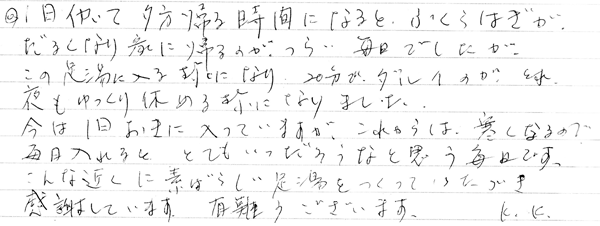 ◎1日仂いて夕方帰る時間になると、ふくらはぎが、
だるくなり家に帰るのが、つらい毎日でしたが、
この足湯に入る様になり、20分が、ダルイのが、とれ、
夜もゆっくり休める様になりました。
今は1日おきに入っていますが、これからは、寒くなるので
毎日入れると、とてもいいだろうなと思う毎日です。
こんな近くに素ばらしい足湯をつくっていただき
感謝しています。有難うございます。 K.K.